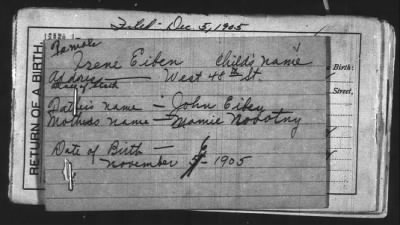 Filed - Dec 5, 1905
Female
Irene Eiben Child's name
Address West 48th St.
Father's name - John Eiben
Mothers name - Mamie Novotny
Date of Birth -
November 5 - 1905
RETURN OF A BIRTH.
Birth:
Street,